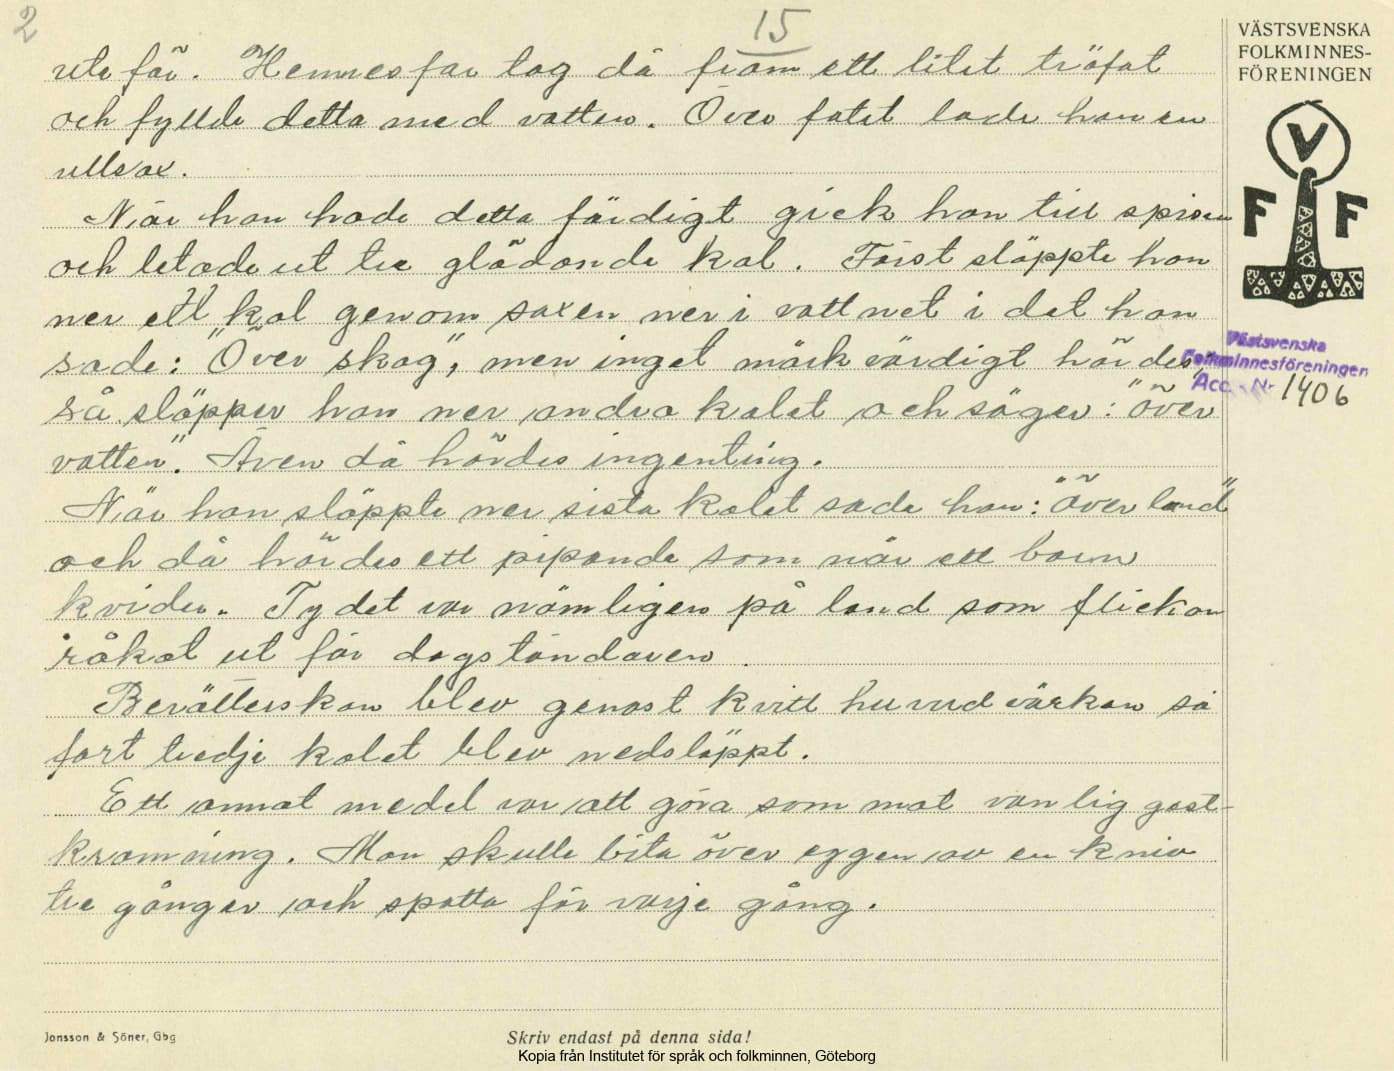 2
15
ute för. Hennes far tog då fram ett litet träfat
och fyllde detta med vatten. Över fatet lade han en
ullsax.
När han hade detta färdigt gick han till spisen
och letade ut tre glödande kol. Först släppte han
ner ett kol genom saxen ner i vattnet i det han
sade: "Över skog", men inget märkvärdigt hördes,
så släpper han ner andra kolet och säger: "över
vatten". Även då hördes ingenting.
När han släppte ner sista kolet sade han: "över land"
och då hördes ett pipande som när ett barn
kvider. Ty det var nämligen på land som flickan
råkat ut för dags
Berätterskan blev genast kvitt huvudvärken så
fort tredje kolet blev nedsläppt.
Ett annat medel var att göra som mot vanlig gast-
kramning. Man skulle bita över eggen av en kniv
tre gånger och spotta för varje gång.
VÄSTSVENSKA
FOLKMINNES-
FÖRENINGEN
V
F F
Västsvenska
Folkminnesföreningen
Acc. Nr 1406
Jonsson & Söner, Gbg
Skriv endast på denna sida!
Kopia från Institutet för språk och folkminnen, Göteborg